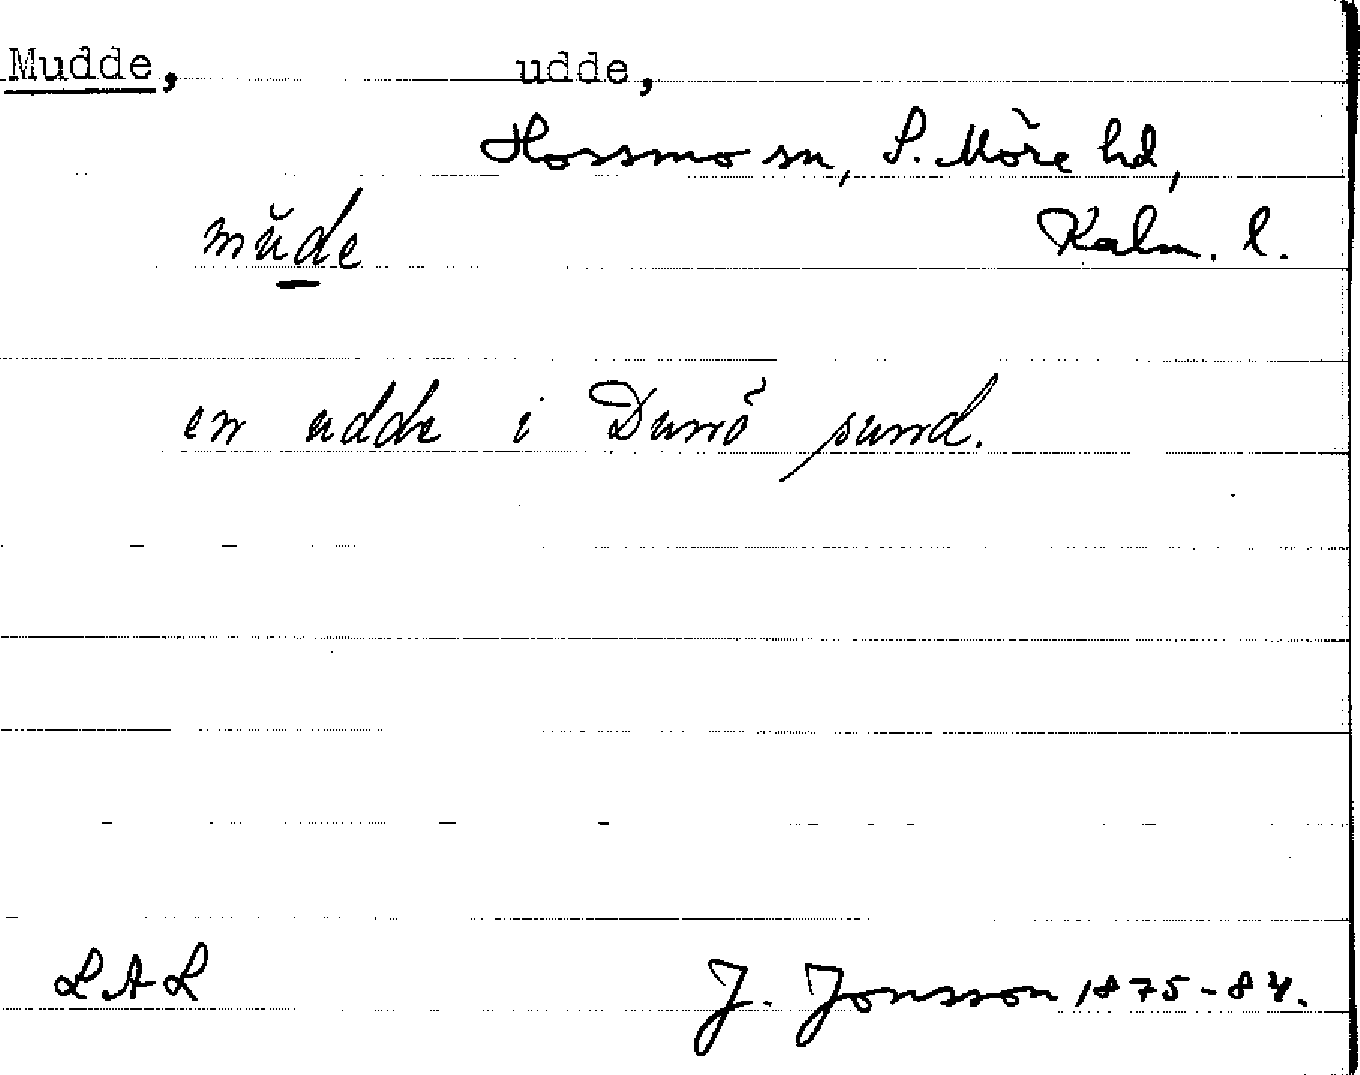 Mudde, udde,
Hossmo sn, S. Möre hd,
mŭde Kalm. l.
en udde i Dunö sund.
LAL J. Jonsson 1875-84.